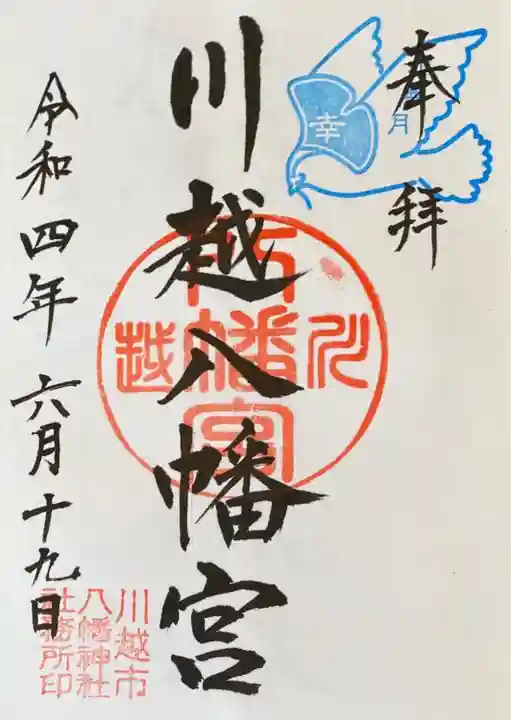 奉拝
六月
幸
川越八幡宮
川越
八幡宮
令和四年六月十九日
川越市
八幡神社
社務所印